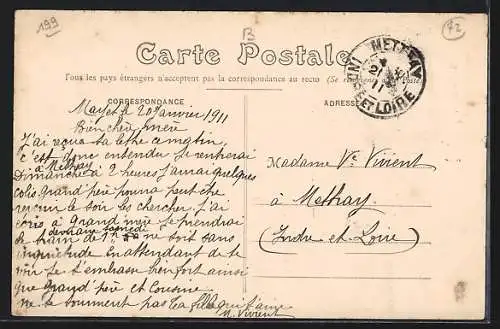 199
B
72
Carte Postale
Tous les pays étrangers n'acceptent pas la correspondance au recto (Se renseigner à la Poste)
CORRESPONDANCE
ADRESSE
METTRAY
21
11
INDRE ET LOIRE
Mayet le 20 Janvier 1911
Bien chère mère
J'ai reçu ta lettre ce matin,
c'est donc entendu je rentrerai
à Mettray
Dimanche à 2 heures j'aurai quelques
colis. Grand père pourra peut être
venir le soir les chercher. J'ai
écris à Grand mère je prendrai
demain samedi
le train de 1h ne sois sans
inquiétude. En attendant de te
voir je t'embrasse bien fort ainsi
que Grand père et Cousine
ne te tourment pas ta fille
M. Vivient
Madame Ve Vivient
à Mettray
(Indre et Loire)